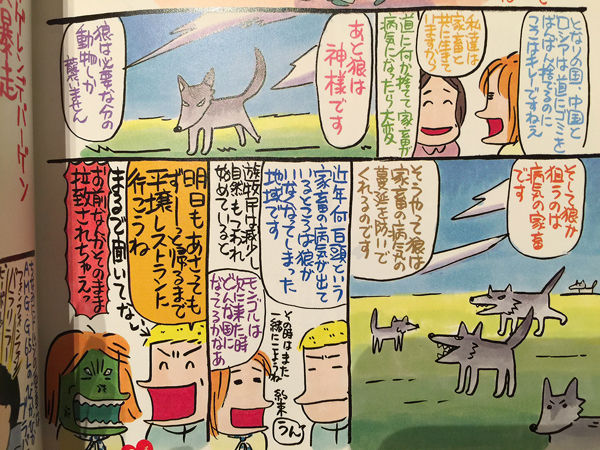 となりの国、中国と
ロシアは道にゴミを
ばんばん捨てるのに
ココはキレーですねえ
私達は
家畜と
共に生きて
いますから
道に何か捨てて家畜が
病気になったら大変
あと狼は
神様です
狼は必要な分の
動物しか
襲いません
そして狼が
狙うのは
病気の家畜
です
そうやって狼は
家畜の病気の
蔓延を防いで
くれるのです
近年何百頭という
家畜の病気が出て
いるところは狼が
いなくなってしまった
地域です
遊牧民は減少し
自然もうしなわれ
始めていると
モンゴルは
次に来た時
どんな国に
なってるかなあ
その時はまた
一緒にこようね
約束
うん
明日もあさっても
ずーっと帰るまで
平壌レストランに
行こうね
まるで聞いてないっ
お前なんかそのまま
拉致されちゃえっ
トレンディバーゲン
暴走